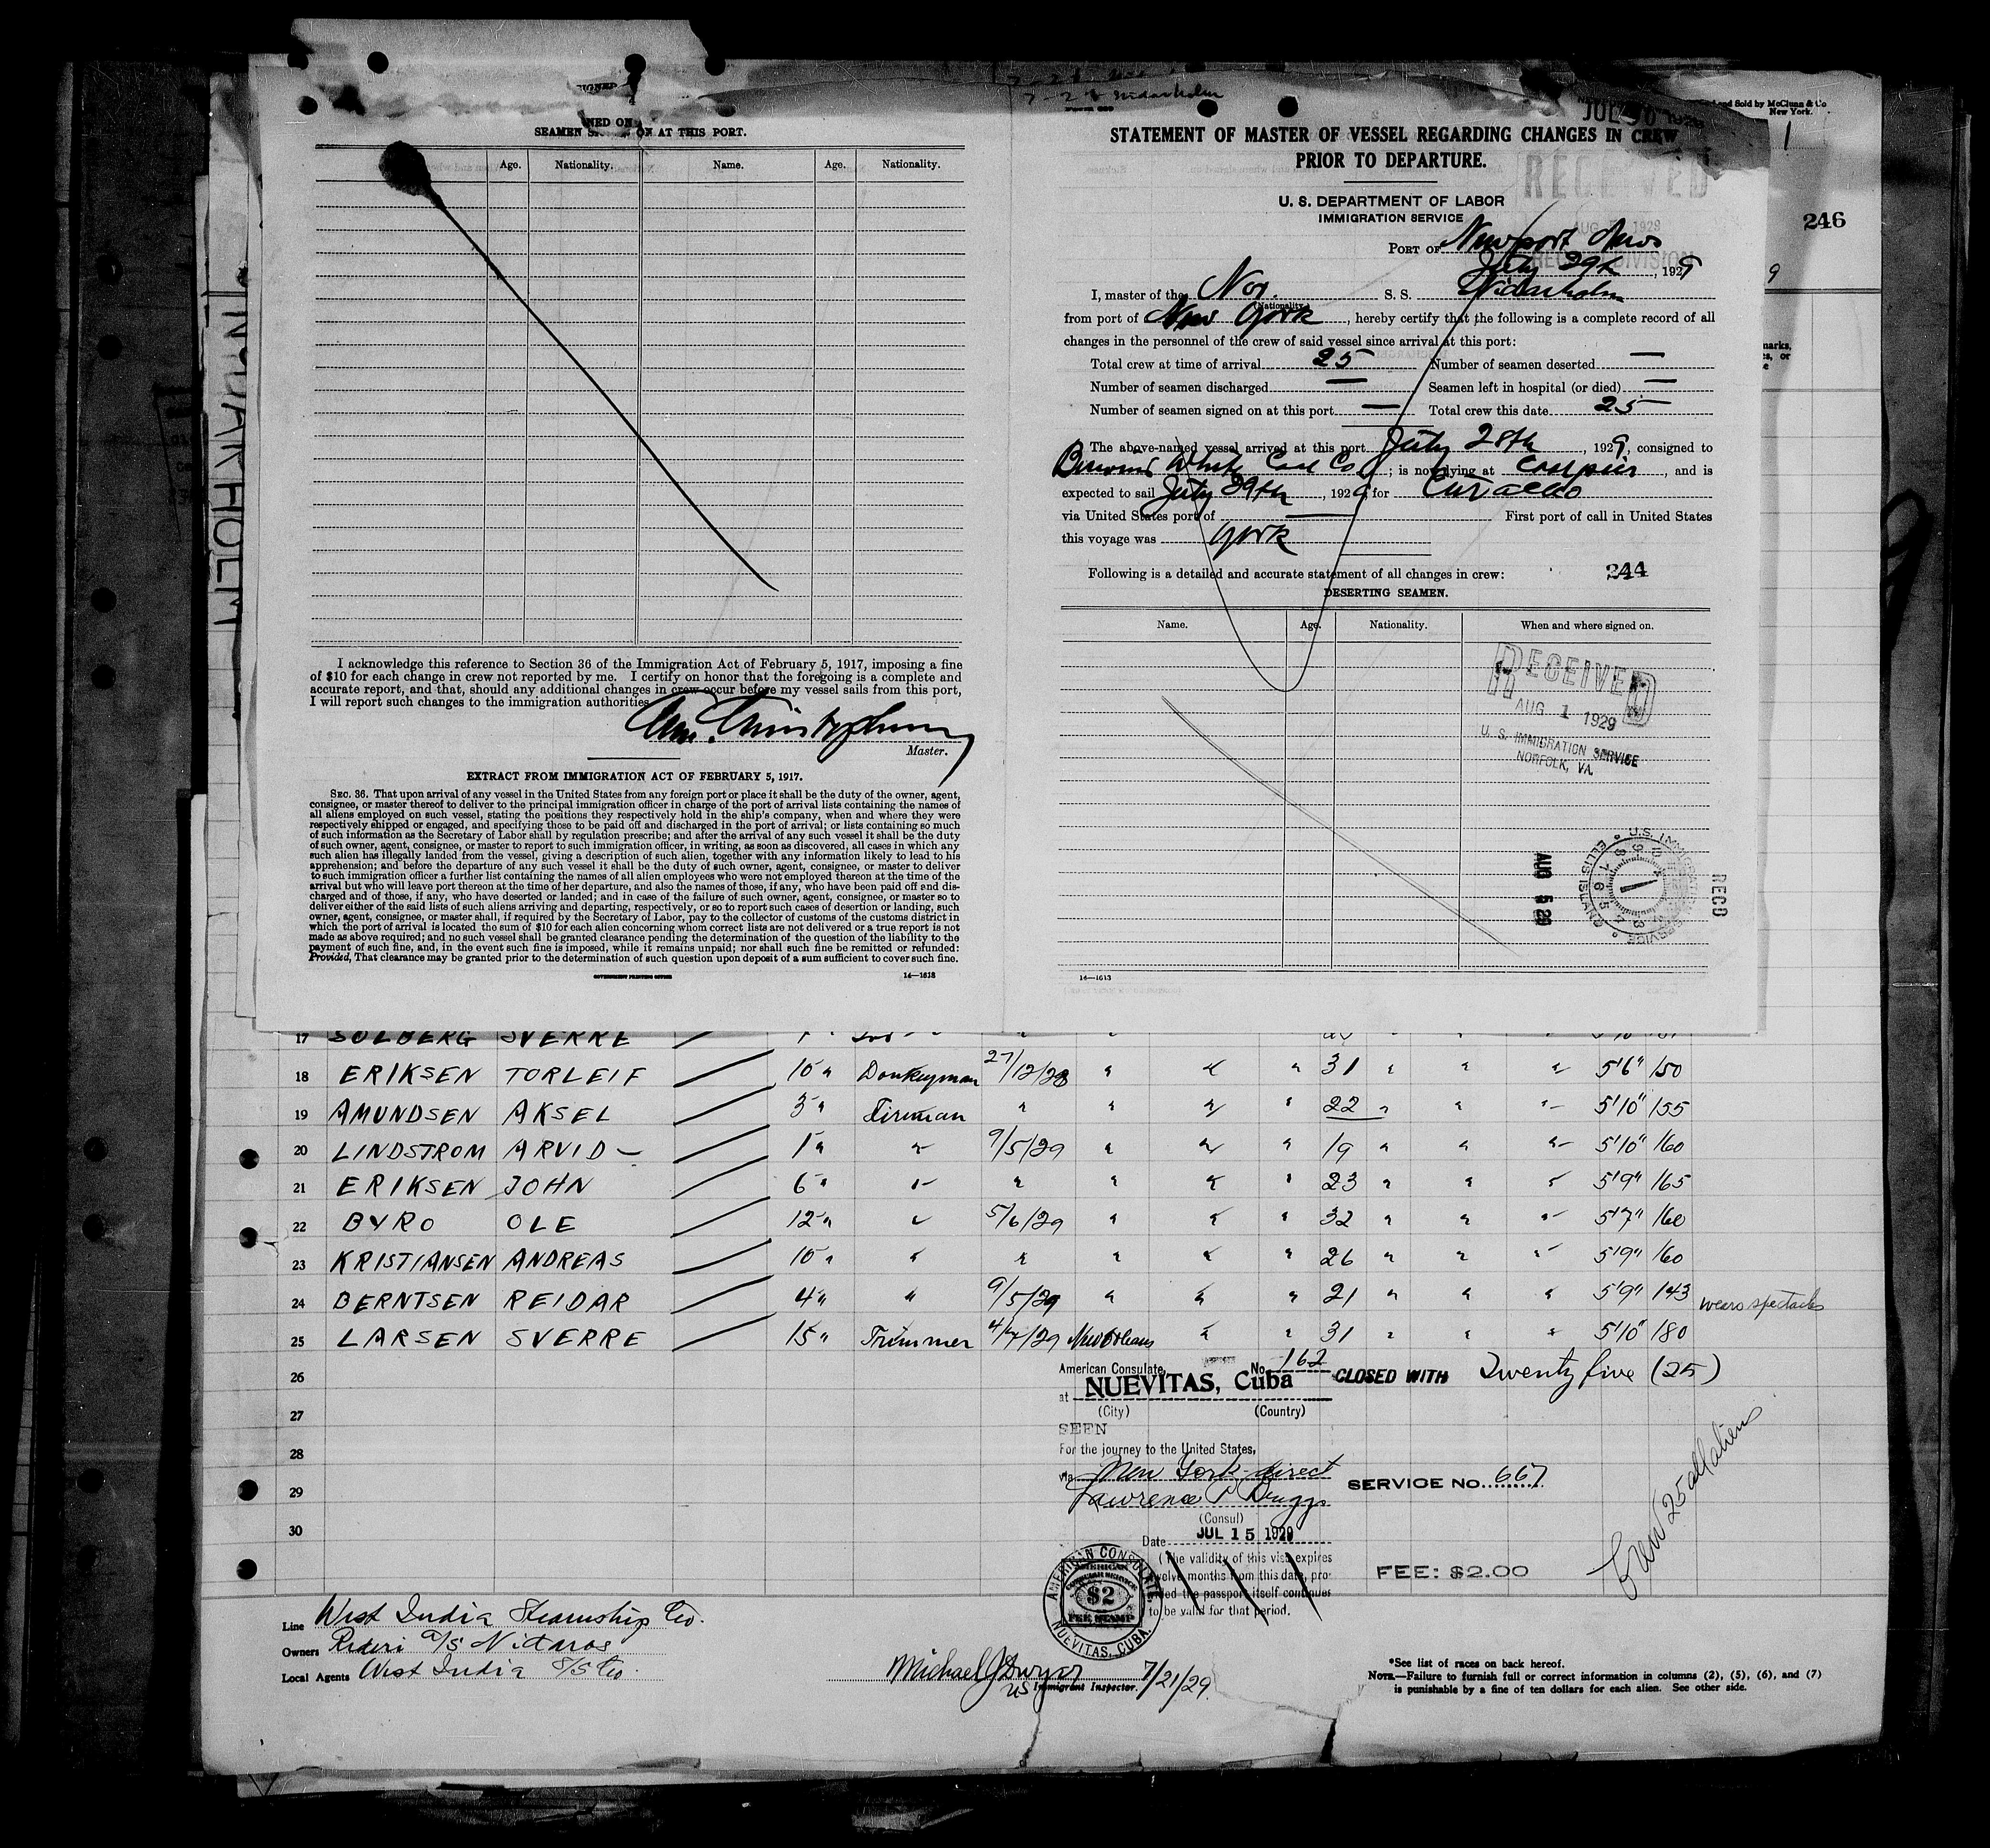 NIDARHOLM
SEAMEN SIGNED ON AT THIS PORT.
Age. Nationality. Name. Age. Nationality.
I acknowledge this reference to Section 36 of the Immigration Act of February 5, 1917, imposing a fine
of $10 for each change in crew not reported by me. I certify on honor that the foregoing is a complete and
accurate report, and that, should any additional changes in crew occur before my vessel sails from this port,
I will report such changes to the immigration authorities.
Master.
EXTRACT FROM IMMIGRATION ACT OF FEBRUARY 5, 1917.
SEC. 36. That upon arrival of any vessel in the United States from any foreign port or place it shall be the duty of the owner, agent,
consignee, or master thereof to deliver to the principal immigration officer in charge of the port of arrival lists containing the names of
all aliens employed on such vessel, stating the positions they respectively hold in the ship's company, when and where they were
respectively shipped or engaged, and specifying those to be paid off and discharged in the port of arrival; or lists containing so much
of such information as the Secretary of Labor shall by regulation prescribe; and after the arrival of any such vessel it shall be the duty
of such owner, agent, consignee, or master to report to such immigration officer, in writing, as soon as discovered, all cases in which any
such alien has illegally landed from the vessel, giving a description of such alien, together with any information likely to lead to his
apprehension; and before the departure of any such vessel it shall be the duty of such owner, agent, consignee, or master to deliver
to such immigration officer a further list containing the names of all alien employees who were not employed thereon at the time of the
arrival but who will leave port thereon at the time of her departure, and also the names of those, if any, who have been paid off and dis-
charged and of those, if any, who have deserted or landed; and in case of the failure of such owner, agent, consignee, or master so to
deliver either of the said lists of such aliens arriving and departing, respectively, or so to report such cases of desertion or landing, such
owner, agent, consignee, or master shall, if required by the Secretary of Labor, pay to the collector of customs of the customs district in
which the port of arrival is located the sum of $10 for each alien concerning whom correct lists are not delivered or a true report is not
made as above required; and no such vessel shall be granted clearance pending the determination of the question of the liability to the
payment of such fine, and, in the event such fine is imposed, while it remains unpaid; nor shall such fine be remitted or refunded:
Provided, That clearance may be granted prior to the determination of such question upon deposit of a sum sufficient to cover such fine.
GOVERNMENT PRINTING OFFICE 14—1613
Nidarholm
and Sold by McClunn & Co
New York.
1
246
STATEMENT OF MASTER OF VESSEL REGARDING CHANGES IN CREW
PRIOR TO DEPARTURE.
RECEIVED
AUG 1929
DIVISION
U. S. DEPARTMENT OF LABOR
IMMIGRATION SERVICE
PORT OF Newport News
July 29th, 1929
I, master of the Nor. S. S. Nidarholm
(Nationality.)
from port of New York, hereby certify that the following is a complete record of all
changes in the personnel of the crew of said vessel since arrival at this port:
Total crew at time of arrival 25 Number of seamen deserted —
Number of seamen discharged — Seamen left in hospital (or died) —
Number of seamen signed on at this port — Total crew this date 25
The above-named vessel arrived at this port July 28th, 1929, consigned to
Berwind White Coal Co; is now lying at Coalpier, and is
expected to sail July 29th, 1929 for Curacao
via United States port of — First port of call in United States
this voyage was York
Following is a detailed and accurate statement of all changes in crew: 244
DESERTING SEAMEN.
Name. Age. Nationality. When and where signed on.
RECEIVED
AUG 1 1929
U. S. IMMIGRATION SERVICE
NORFOLK, VA.
AUG 5 29
RECD
14—1613
17 SOLBERG SVERRE
18 ERIKSEN TORLEIF 10 " Donkeyman 27/12/28 " " " 31 " " " 5'6" 150
19 AMUNDSEN AKSEL 3 " Fireman " " " " 22 " " " 5'10" 155
20 LINDSTROM ARVID 1 " " 9/5/29 " " " 19 " " " 5'10" 160
21 ERIKSEN JOHN 6 " " " " " " 23 " " " 5'9" 165
22 BYRO OLE 12 " " 5/6/29 " " " 32 " " " 5'7" 160
23 KRISTIANSEN ANDREAS 10 " " " " " " 26 " " " 5'9" 160
24 BERNTSEN REIDAR 4 " " 9/5/29 " " " 21 " " " 5'9" 143 wears spectacles
25 LARSEN SVERRE 15 " Trimmer 4/4/29 New Orleans " " 31 " " " 5'10" 180
26
27
28
29
30
American Consulate, No. 162
at NUEVITAS, Cuba
(City) (Country)
SEEN
For the journey to the United States,
via New York direct
Lawrence P Briggs
(Consul)
Date JUL 15 1929
(The validity of this visa expires
twelve months from this date, pro-
vided the passport itself continues
to be valid for that period.
CLOSED WITH Twenty five (25)
SERVICE NO. 667
FEE: $2.00
Crew 25 all aliens
AMERICAN CONSULATE
AMERICAN
CONSULAR SERVICE
$2
FEE STAMP
NUEVITAS, CUBA.
Line West India Steamship Co.
Owners Rederi a/s Nidaros
Local Agents West India S/S Co.
Michael J Dwyer 7/21/29
US Immigrant Inspector.
*See list of races on back hereof.
NOTE.—Failure to furnish full or correct information in columns (2), (5), (6), and (7)
is punishable by a fine of ten dollars for each alien. See other side.